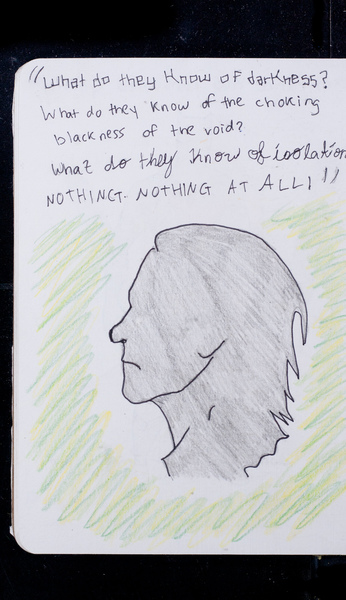 "What do they Know of darkness?
What do they Know of the choking
blackness of the void?
What do they Know of isolation
NOTHING. NOTHING AT ALL!"